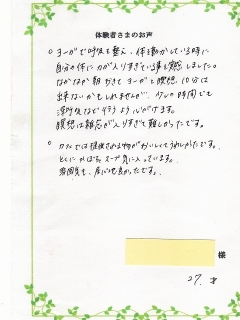 体験者さまのお声
○ヨーガで呼吸を整え、体を動かしている時に
自分の体に力が入りすぎている事を感じました。
なかなか朝おきてヨーガと瞑想10分は
出来ないかもしれませんが、少しの時間でも
深呼吸など行うよう心がけます。
瞑想は雑念が入りすぎて難しかったです。
○カフェでは提供される物がおいしくてうれしかったです。
とくにかぼちゃスープ気に入っています。
雰囲気も、居心地良かったです。
様
27.才